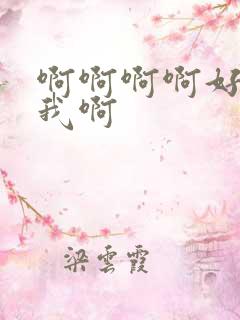 啊啊啊啊好
我啊
梁雲霞